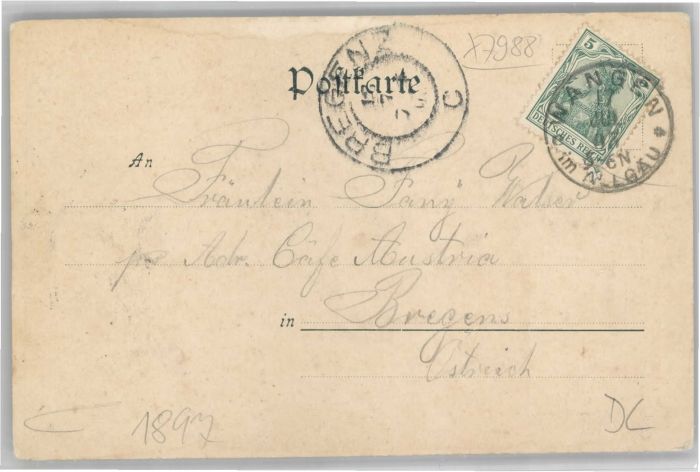 X7988
5
DEUTSCHES REICH
WANGEN
im ALLGÄU
BREGENZ
C
Postkarte
An
Fräulein Fany Walser
pr Adr. Cafe Austria
in Bregens
Östreich
1897
DC